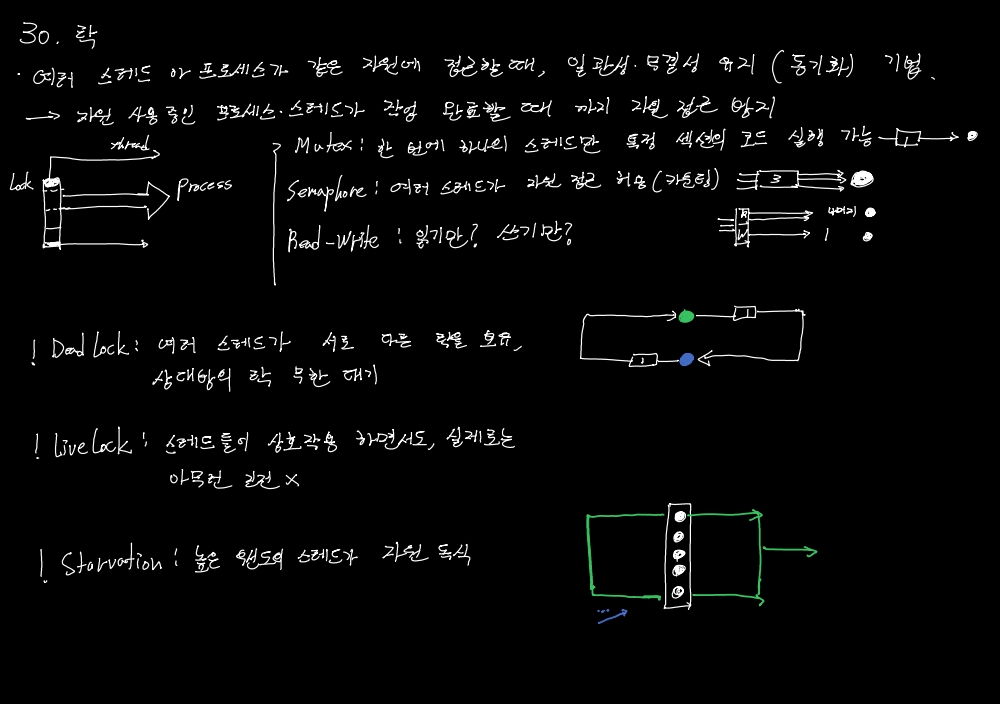 30. 락
· 여러 스레드 or 프로세스가 같은 자원에 접근할 때, 일관성·무결성 유지 (동기화) 기법.
→ 자원 사용중인 프로세스·스레드가 작업 완료할 때 까지 자원 접근 방지
thread
Lock
Process
Mutex : 한 번에 하나의 스레드만 특정 섹션의 코드 실행 가능
1
Semaphore : 여러 스레드가 자원 접근 허용 (카운팅)
3
Read-Write : 읽기만? 쓰기만?
R 나머지
W 1
! Dead Lock : 여러 스레드가 서로 다른 락을 보유,
상대방의 락 무한 대기
1
! LiveLock : 스레드들이 상호작용 하면서도, 실제로는
아무런 진전 X
! Starvation : 높은 스레드가 자원 독식
...